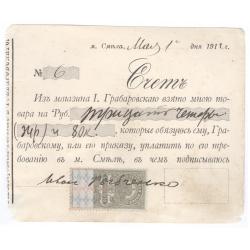 м. Смѣла, Мая 1 дня 1911 г.
№ 6
Счетъ
Изъ магазина І. Грабаровскаго взято мною то-
вара на Руб. тридцать четыре
(34 р) и 80 к., которые обязуюсь ему, Гра-
баровскому, или его приказу, уплатить по его тре-
бованію въ м. Смѣлѣ, въ чемъ подписываюсь
Иван